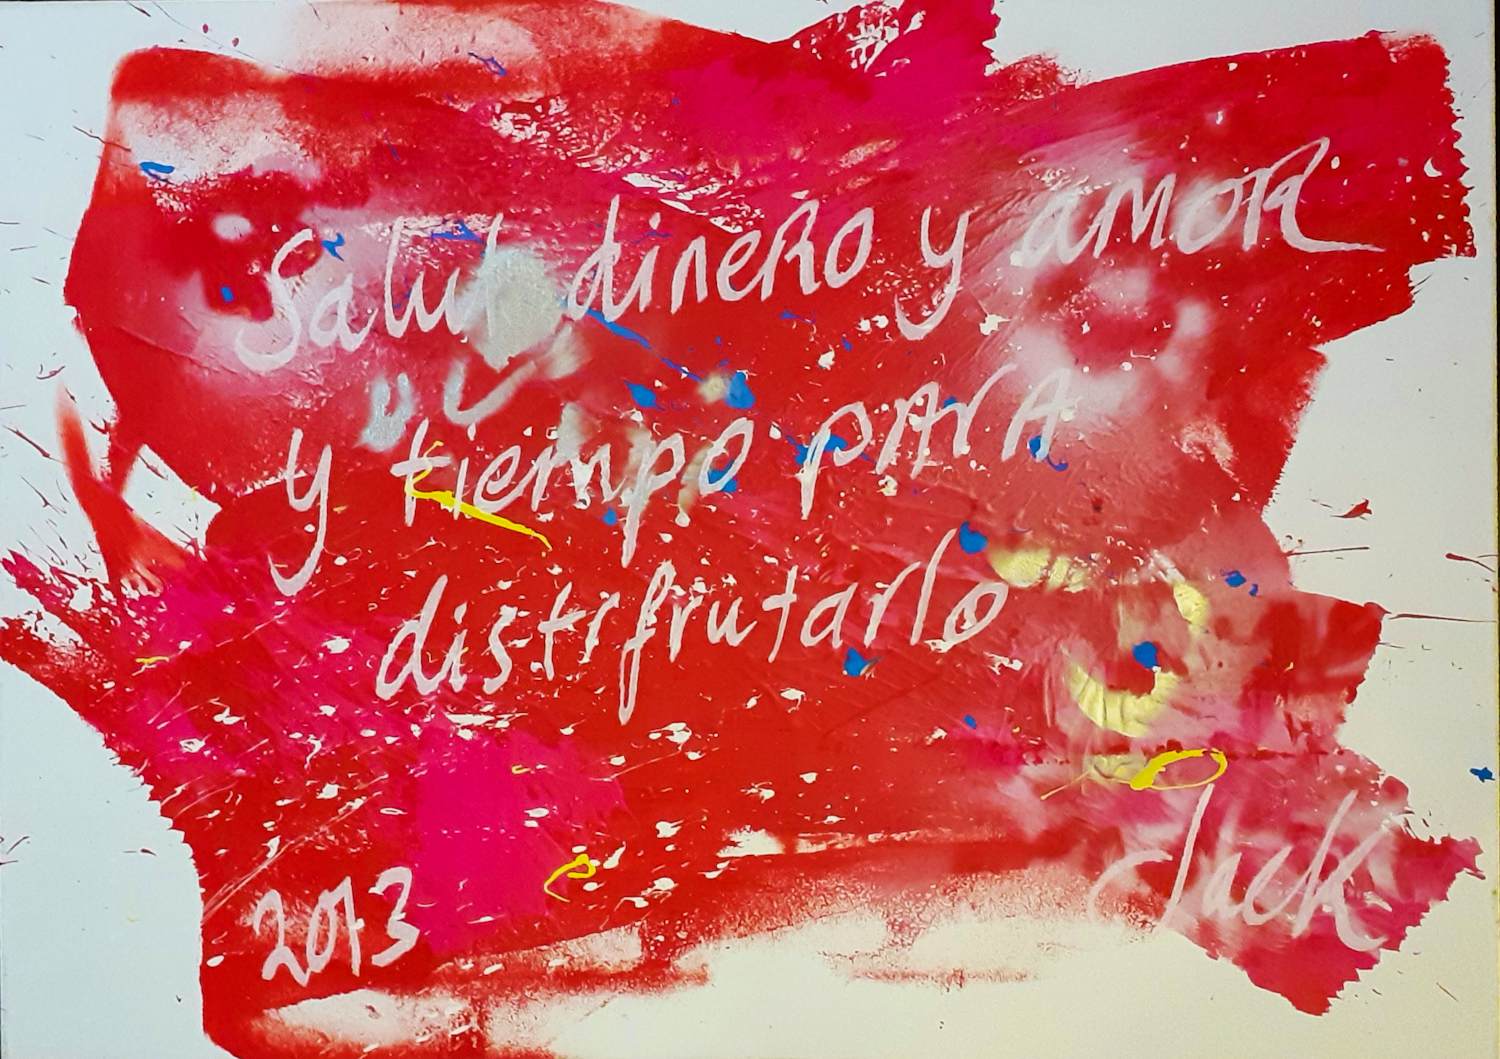 Salud dinero y amor
y tiempo para
distrfrutarlo
2013
Jack